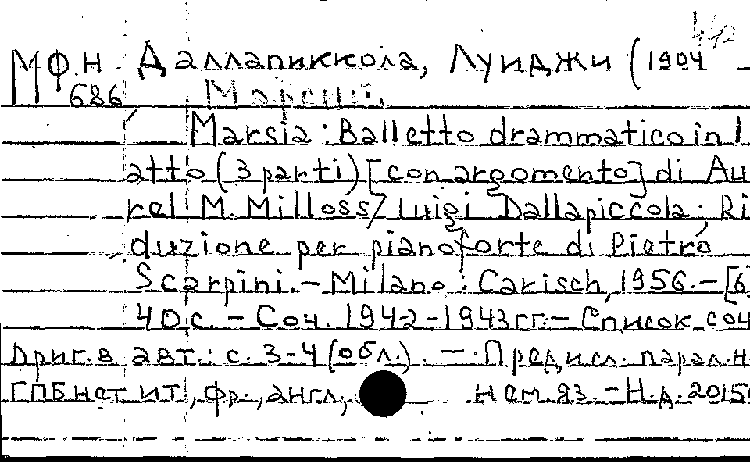 МФ.Н Даллапиккола, Луиджи (1904 -
686 Марсий.
Marsia : Balletto drammatico in 1
atto (3 parti) [con argomento] di Au
rel M. Milloss / Luigi Dallapiccola ; Ri
duzione per pianoforte di Pietro
Scarpini. – Milano : Carisch, 1956. – [6]
40 с. – Соч. 1942-1943 гг. – Список соч
ориг. в авт.: с. 3-4 (обл.). – Предисл. парал. н
ГПБ нот ит, фр., англ, нем. яз. – Н.д. 2015